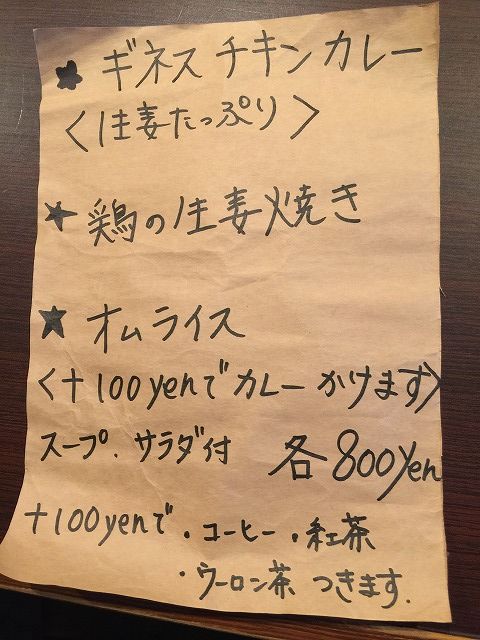 ★ ギネス チキンカレー
〈生姜たっぷり〉
★ 鶏の生姜焼き
★ オムライス
〈+100yenでカレーかけます〉
スープ、サラダ付 各800yen
+100yenで・コーヒー・紅茶
・ウーロン茶 つきます.